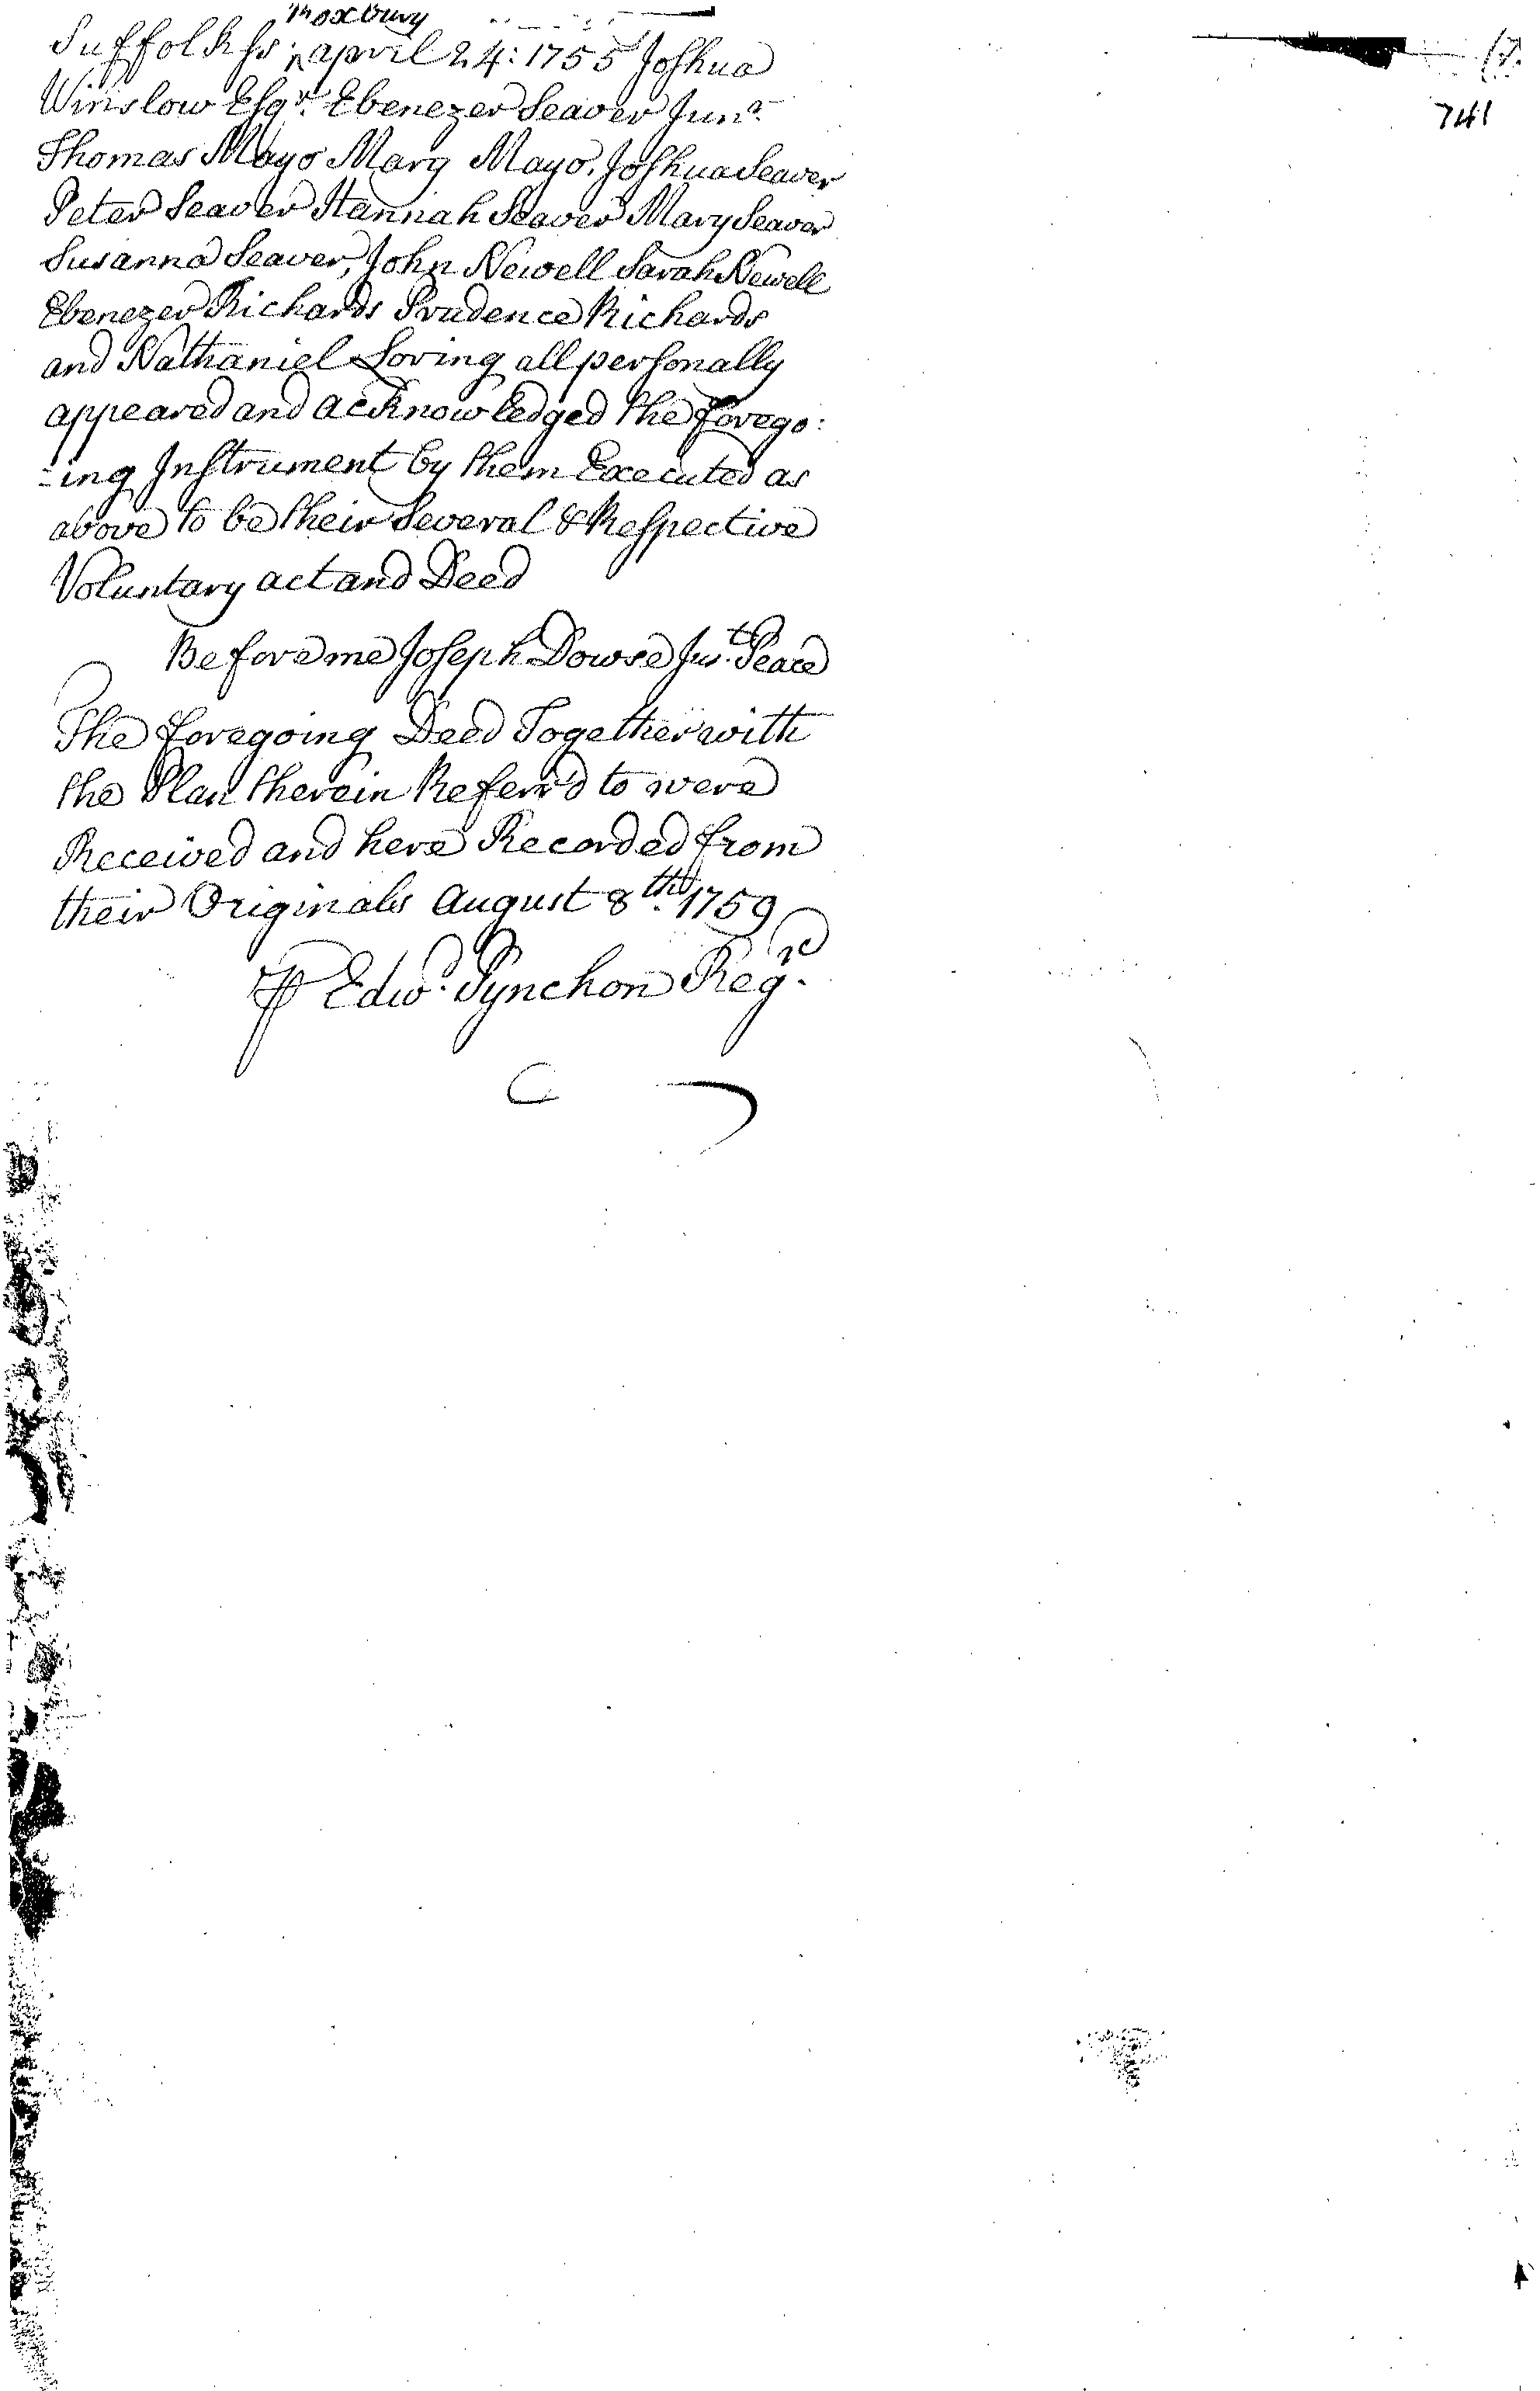 741
Roxbury
Suffolk ss ^ april 24: 1755 Joshua
Winslow Esqr. Ebenezer Seaver Junr.
Thomas Mayo Mary Mayo. Joshua Seaver
Peter Seaver Hannah Seaver Mary Seaver
Susanna Seaver, John Newell Sarah Newell
Ebenezer Richards Prudence Richards
and Nathaniel Loring all personally
appeared and acknowledged the forego:
:ing Instrument by them Executed as
above to be their Several & Respective
Voluntary act and Deed
Before me Joseph Dowse Just. Peace
The foregoing Deed Together with
the Plan therein Referr'd to were
Received and here Recorded from
their Originals August 8th. 1759
⅌ Edwd. Pynchon Regr.